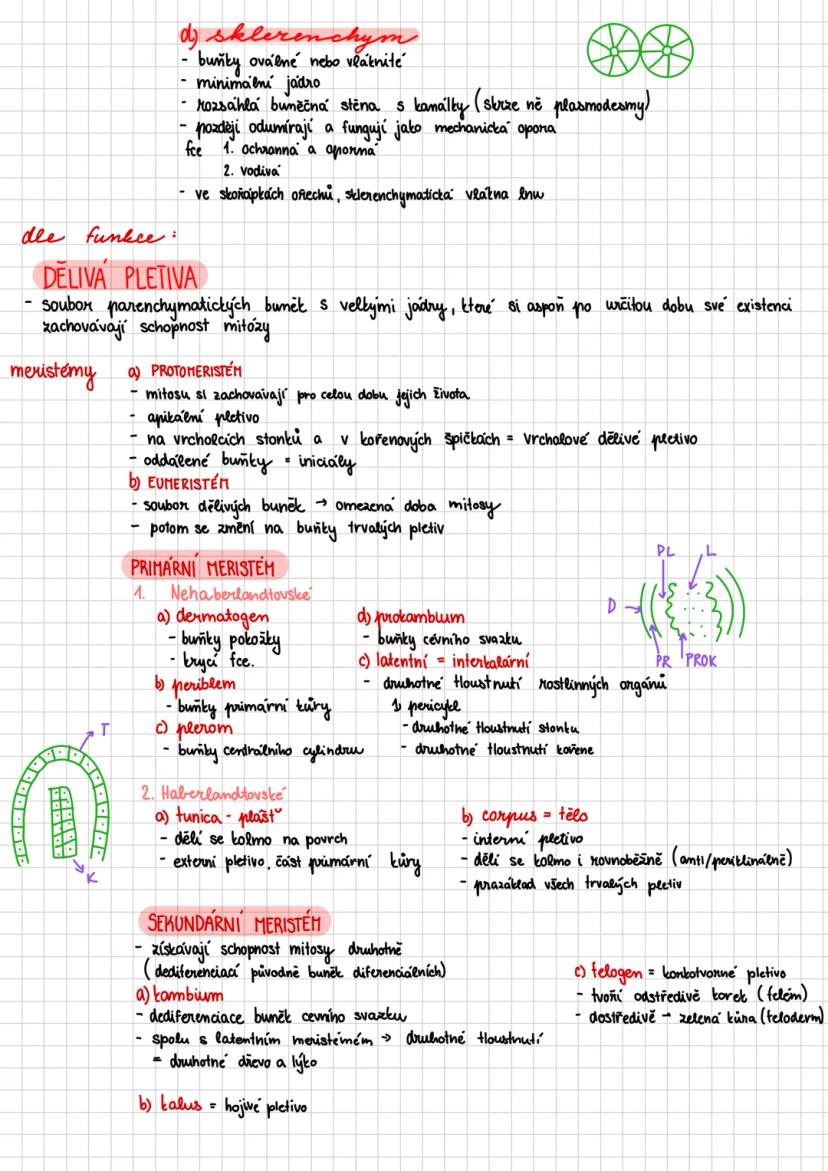 d) sklerenchym
- buňky oválné nebo vláknité
- minimální jádro
- rozsáhlá buněčná stěna s kanálky (skrze ně plasmodesmy)
- později odumírají a fungují jako mechanická opora
fce 1. ochranná a oporná
2. vodivá
- ve skořápkách ořechů, sklerenchymatická vlákna lnu
dle funkce:
DĚLIVÁ PLETIVA
- soubor parenchymatických buněk s velkými jádry, které si aspoň po určitou dobu své existenci
zachovávají schopnost mitózy
meristémy
a) PROTOMERISTÉM
- mitosu si zachovávají pro celou dobu jejich života
- apikální pletivo
- na vrcholcích stonků a v kořenových špičkách = vrcholové dělivé pletivo
- oddálené buňky = iniciály
b) EUMERISTÉM
- soubor dělivých buněk → omezená doba mitosy
- potom se změní na buňky trvalých pletiv
PRIMÁRNÍ MERISTÉM
1. Nehaberlandtovské
a) dermatogen
- buňky pokožky
- krycí fce.
b) periblem
- buňky primární kůry
c) plerom
- buňky centrálního cylindru
d) prokambium
- buňky cévního svazku
c) latentní = interkalární
- druhotné tloustnutí rostlinných orgánů
↳ pericykl
- druhotné tloustnutí stonku
- druhotné tloustnutí kořene
PL L
D
PR PROK
T
K
2. Haberlandtovské
a) tunica - plášť
- dělí se kolmo na povrch
- externí pletivo, část primární kůry
b) corpus = tělo
- interní pletivo
- dělí se kolmo i rovnoběžně (anti/periklinálně)
- prazáklad všech trvalých pletiv
SEKUNDÁRNÍ MERISTÉM
- získávají schopnost mitosy druhotně
(dediferenciací původně buněk diferenciálních)
a) kambium
- dediferenciace buněk cevního svazku
- spolu s latentním meristémém → druhotné tloustnutí
= druhotné dřevo a lýko
b) kalus = hojivé pletivo
c) felogen = korkotvorné pletivo
- tvoří odstředivě korek (felém)
- dostředivě → zelená kůra (feloderm)